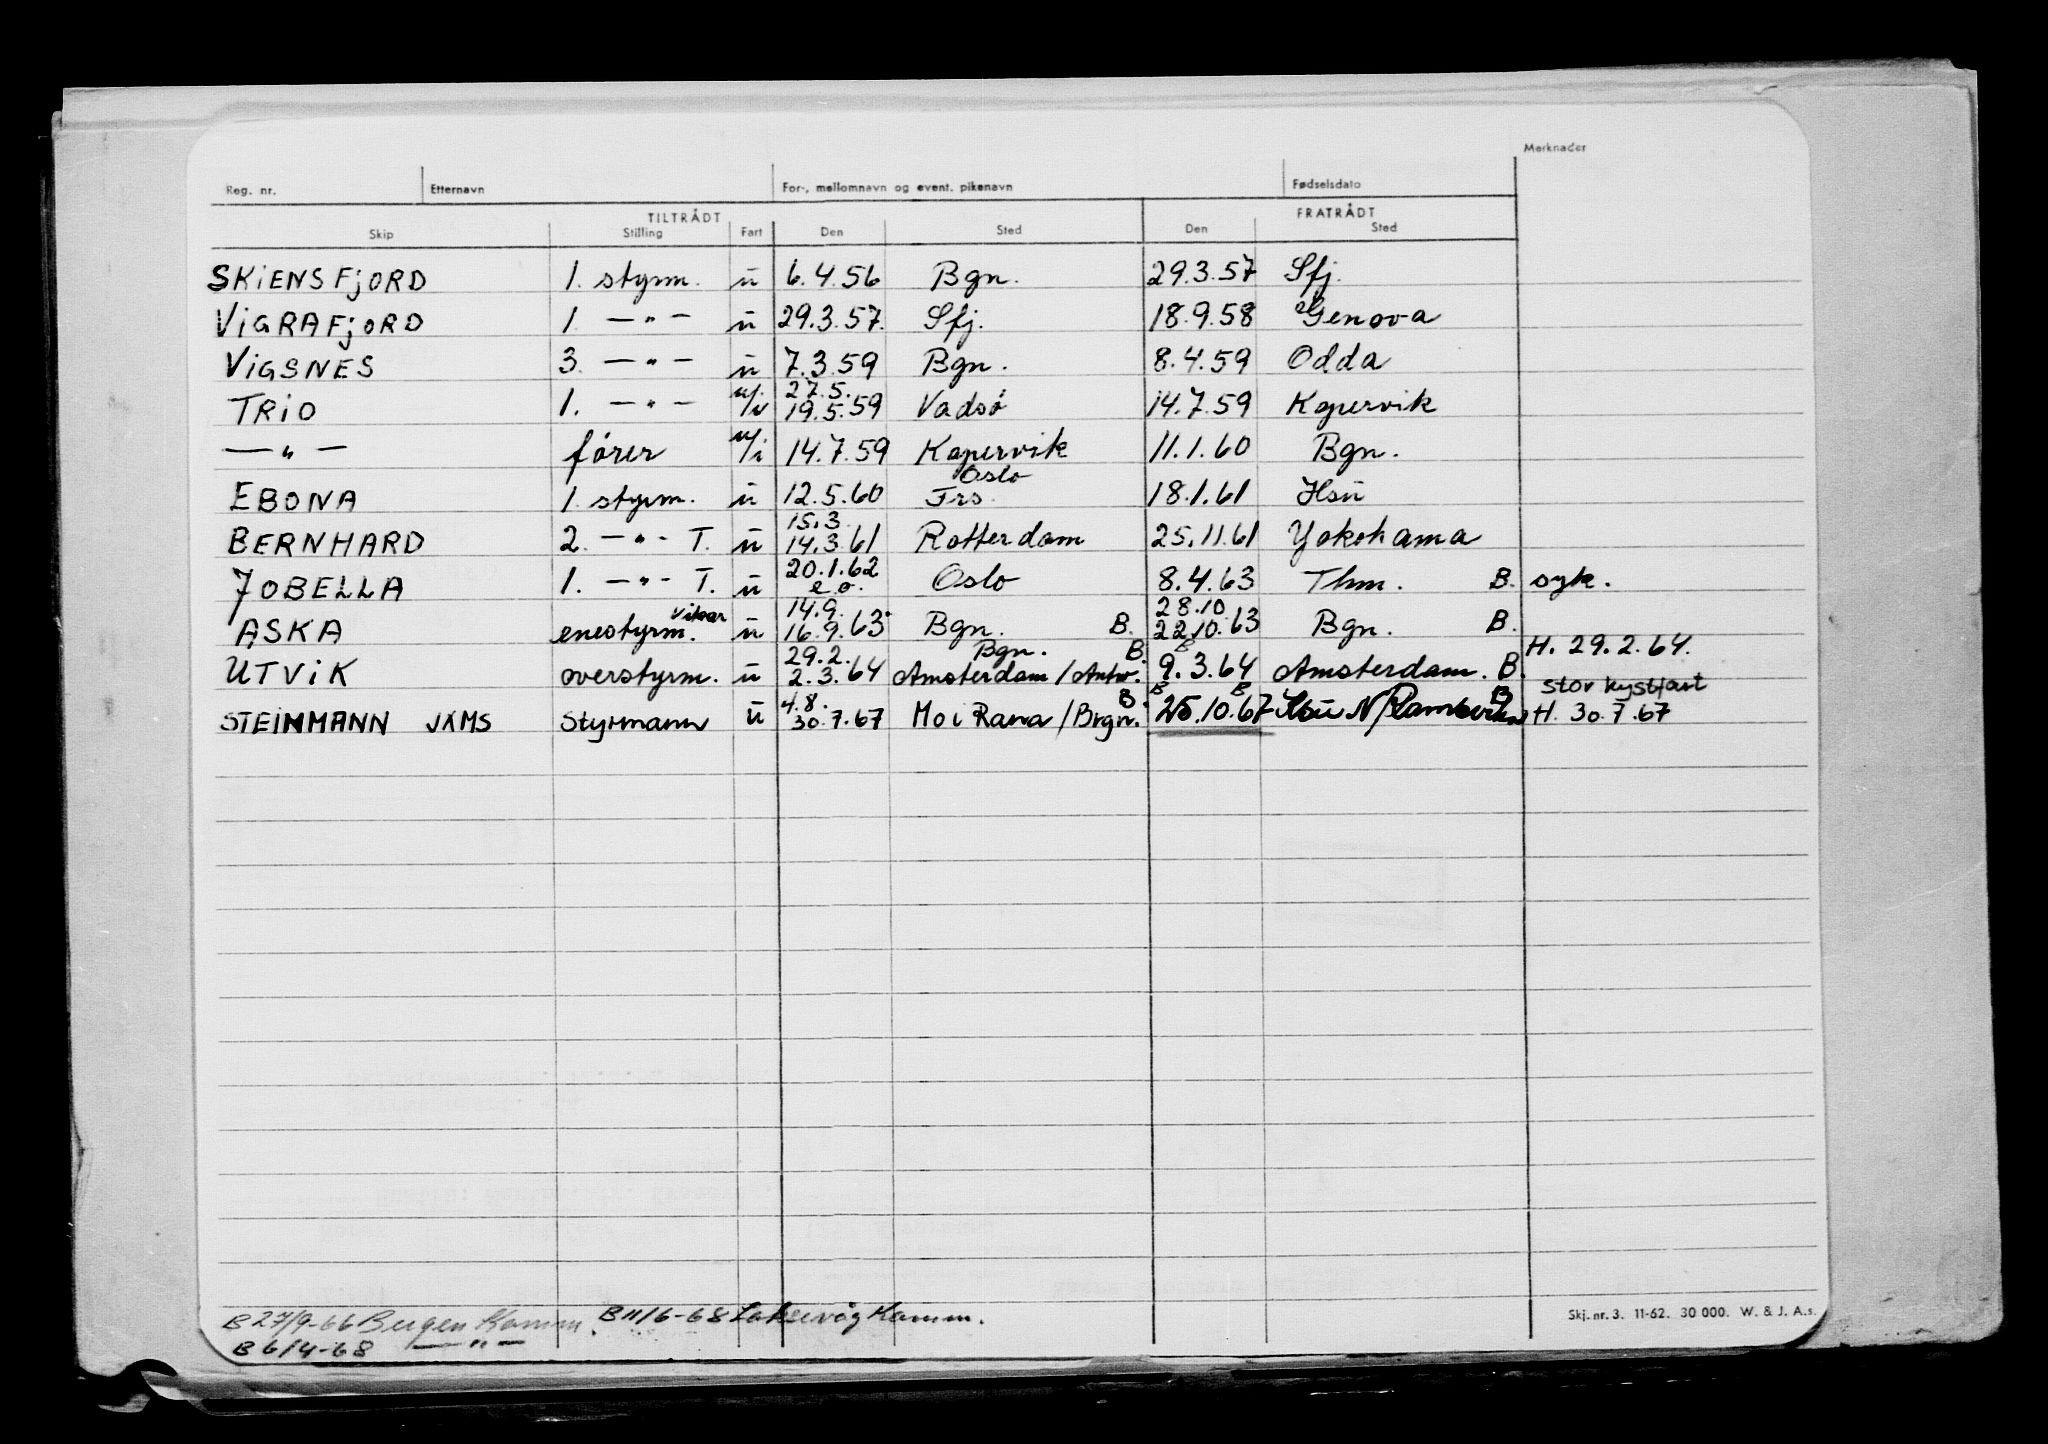 Merknader
Reg. nr. Etternavn For-, mellomnavn og event. pikenavn Fødselsdato
TILTRÅDT FRATRÅDT
Skip Stilling Fart Den Sted Den Sted
SKiENSFjORD 1. styrm. ü 6.4.56 Bgn. 29.3.57 Sfj.
ViGRAFjORD 1 — " — ü 29.3.57. Sfj. 18.9.58 Genova
ViGSNES 3. — " — ü 7.3.59 Bgn. 8.4.59 Odda
27.5.
TRiO 1. — " — 19.5.59 Vadsö 14.7.59 Kopervik
— " — fører 14.7.59 Kopervik 11.1.60 Bgn.
Oslo
EBONA 1 styrm. ü 12.5.60 Frs. 18.1.61 Hsü
15.3
BERNHARD 2. — " - T. ü 14.3.61 Rotterdam 25.11.61 Yokohama
20.1.62
JOBELLA 1. — " - T. ü e.o. Oslo 8.4.63 Thm. B. syk.
vikar 14.9. 28.10
ASKA enestyrm. ü 16.9.63 Bgn. B. 22.10.63 Bgn. B.
29.2. Bgn. B. B H. 29.2.64.
UTViK overstyrm. ü 2.3.64 Amsterdam/Antw. 9.3.64 Amsterdam. B.
4.8. B B B B stor kystfart
STEINMANN JXMS Styrmann ü 30.7.67 Mo i Rana/Brgn. 25.10.67 H. 30.7.67
B 27/9-66 Bergen Komm. B 11/6-68 Laksevåg Komm.
B 6/4-68 — " —
Skj. nr. 3. 11-62. 30 000. W. & J. A.s.